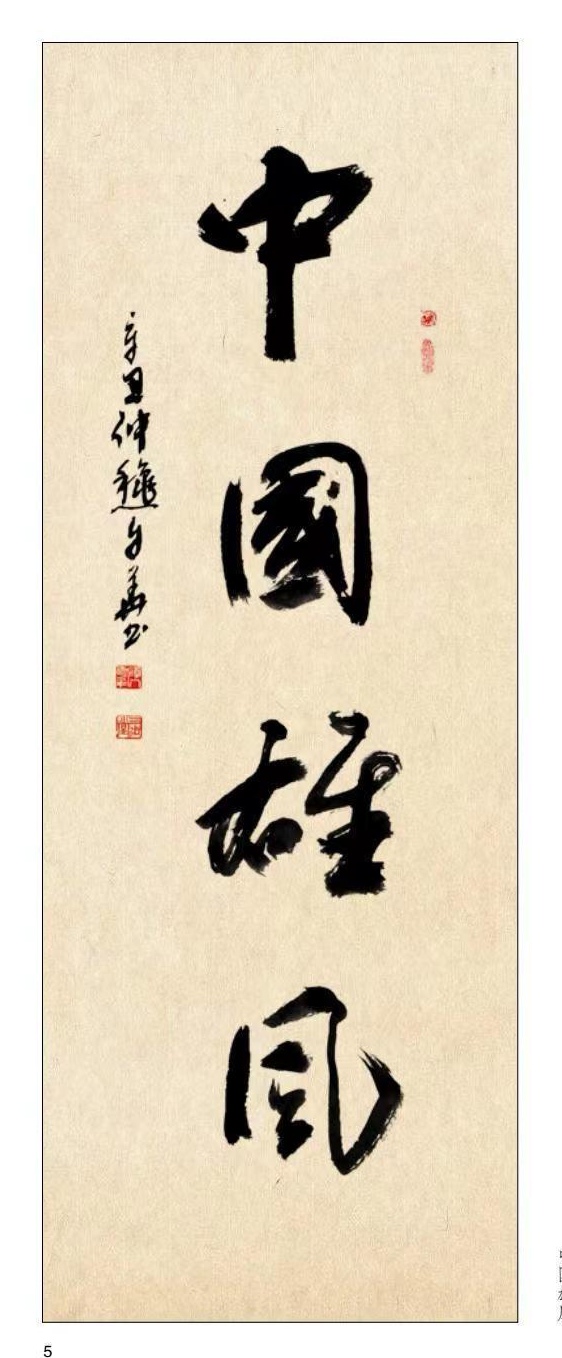 中國雄風
辛丑仲穐
5